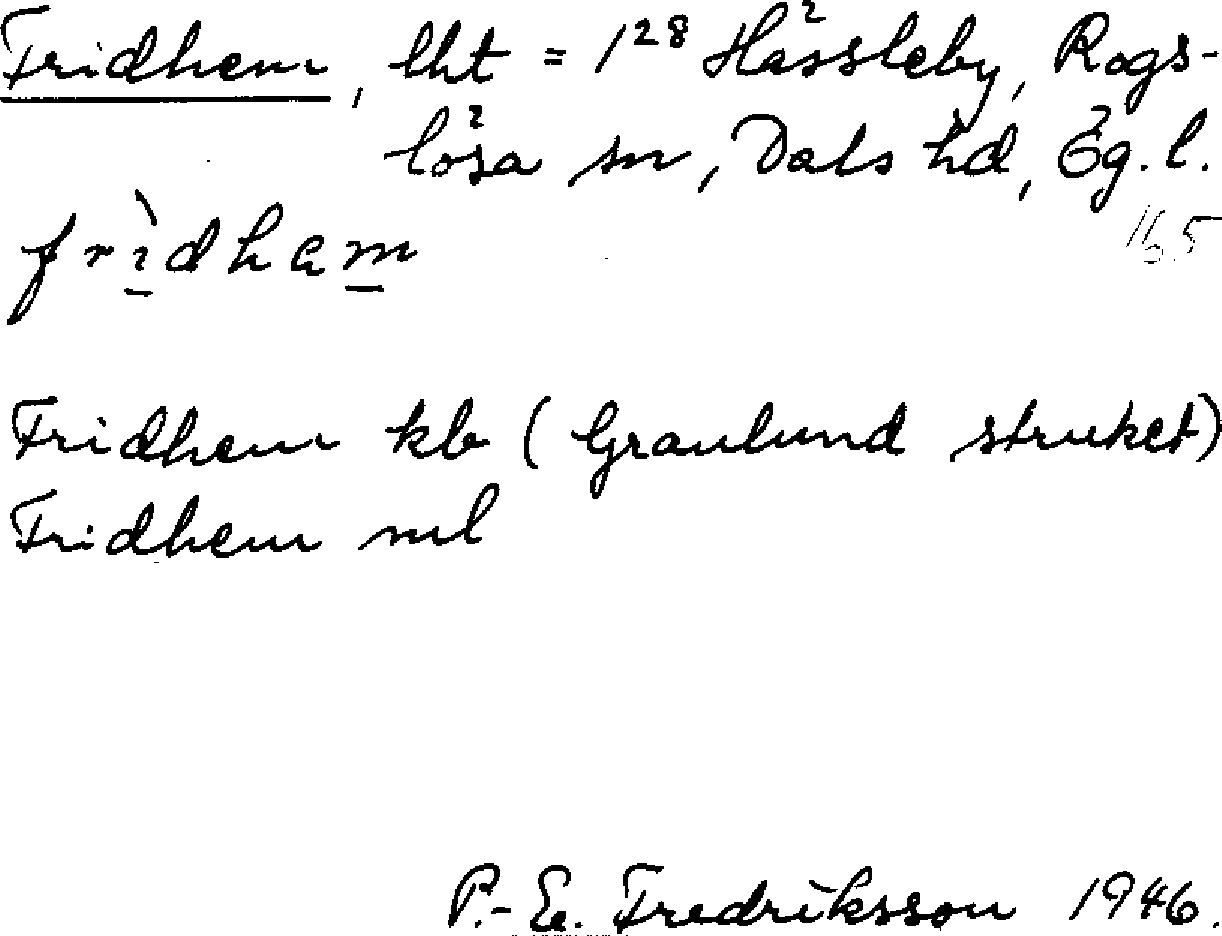 Fridhem, lht = 1²⁸ Hässleby, Rogs-
lösa sn, Dals hd, Ög. l.
165
frìdham
Fridhem kb (Granlund struket)
Fridhem ml
P.-E. Fredriksson 1946.